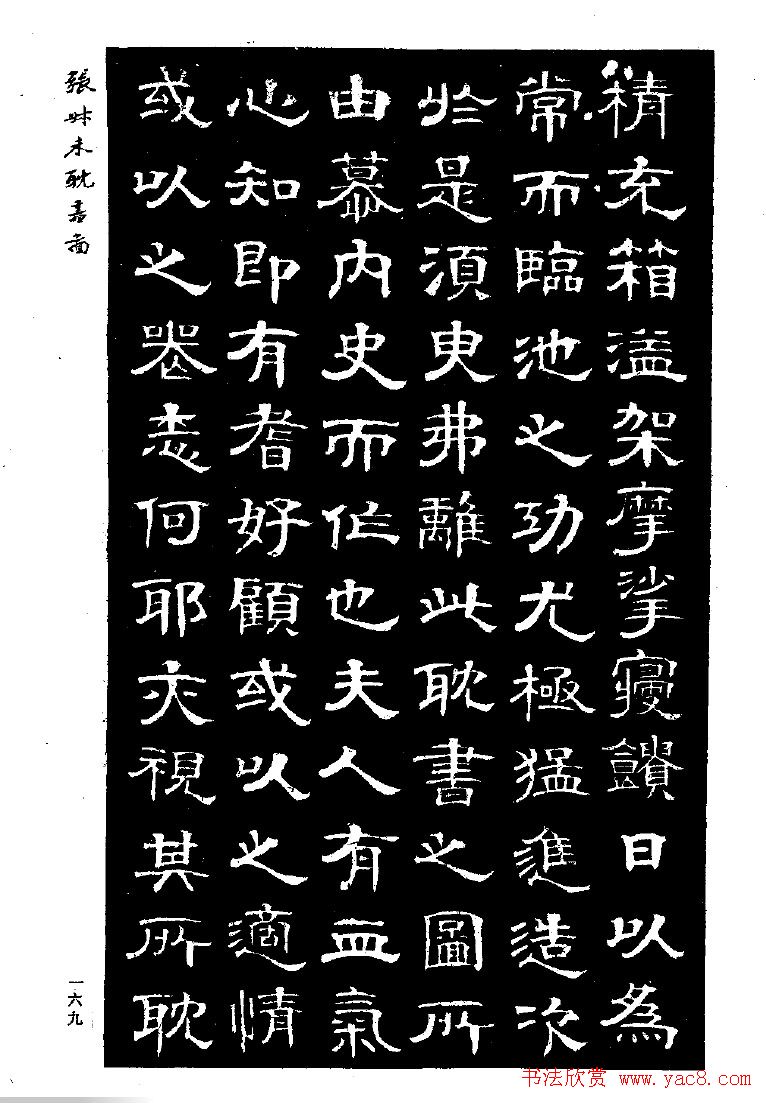 精充箱溢架摩挲寢饋日以為
常而臨池之功尤極猛進造次
於是須臾弗離此耽書之圖所
由慕内史而作也夫人有血氣
心知即有耆好顧或以之適情
或以之喪志何耶亦視其所耽
張叔未耽書圖
一六九
书法欣赏 www.yac8.com